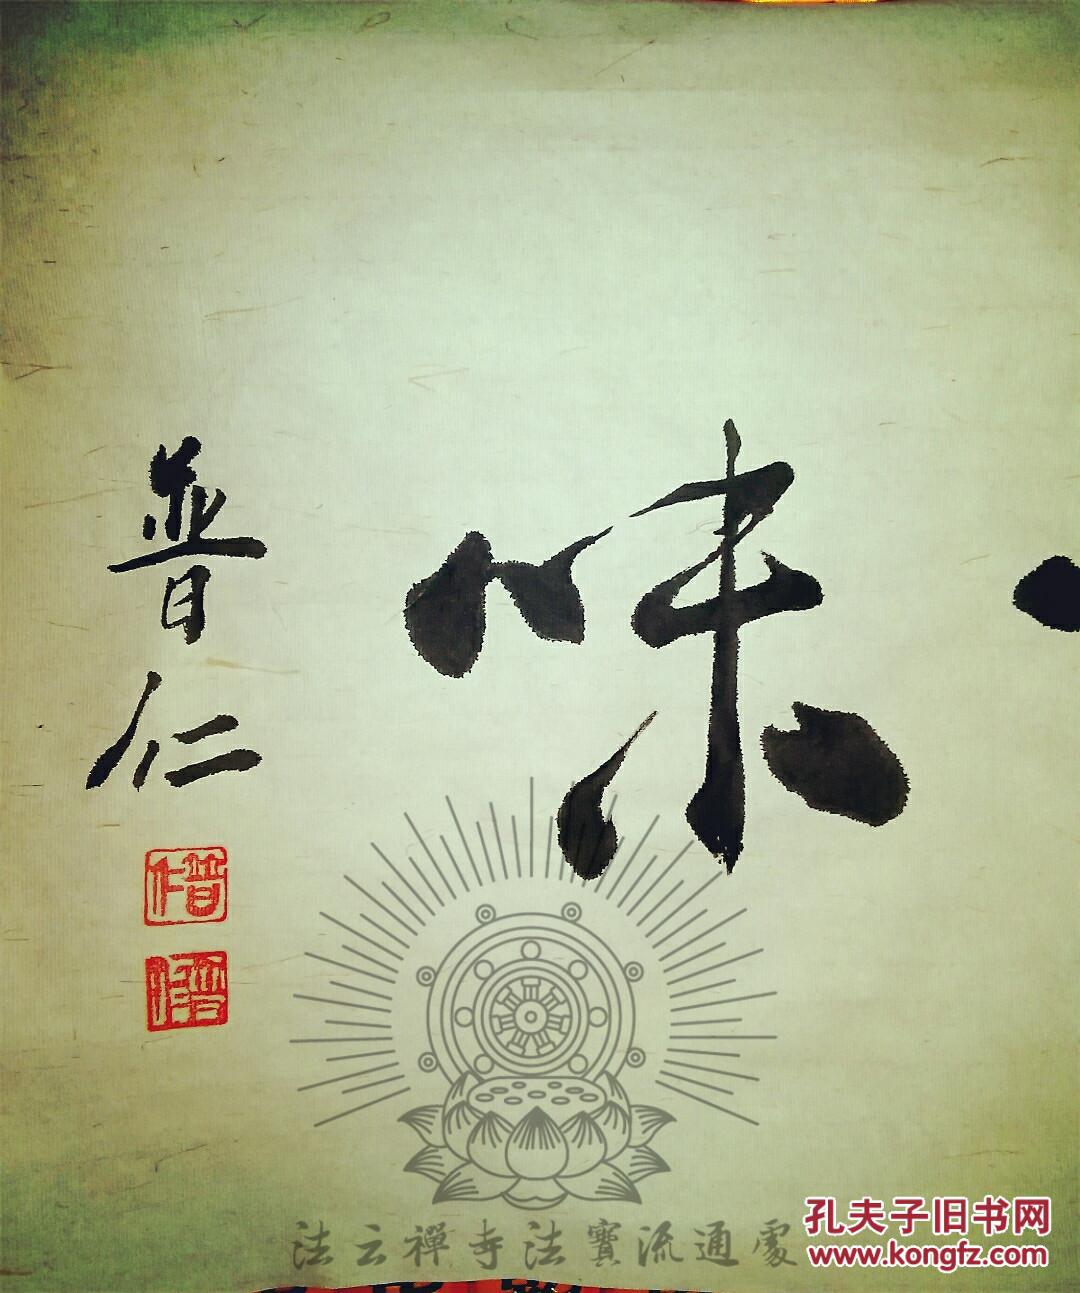 味
普仁
普仁
法云禪寺法寶流通處
孔夫子旧书网
www.kongfz.com